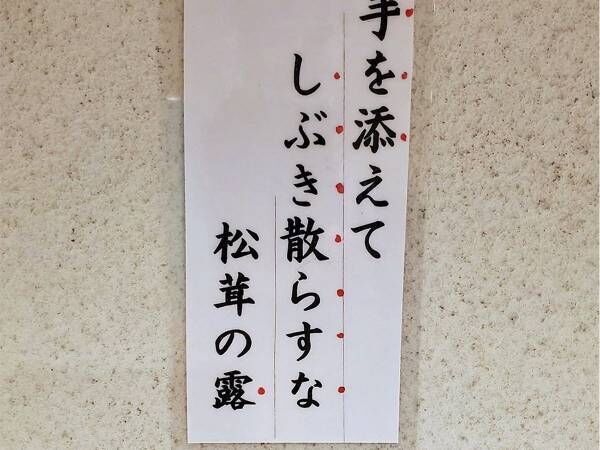 手を添えて
しぶき散らすな
松茸の露